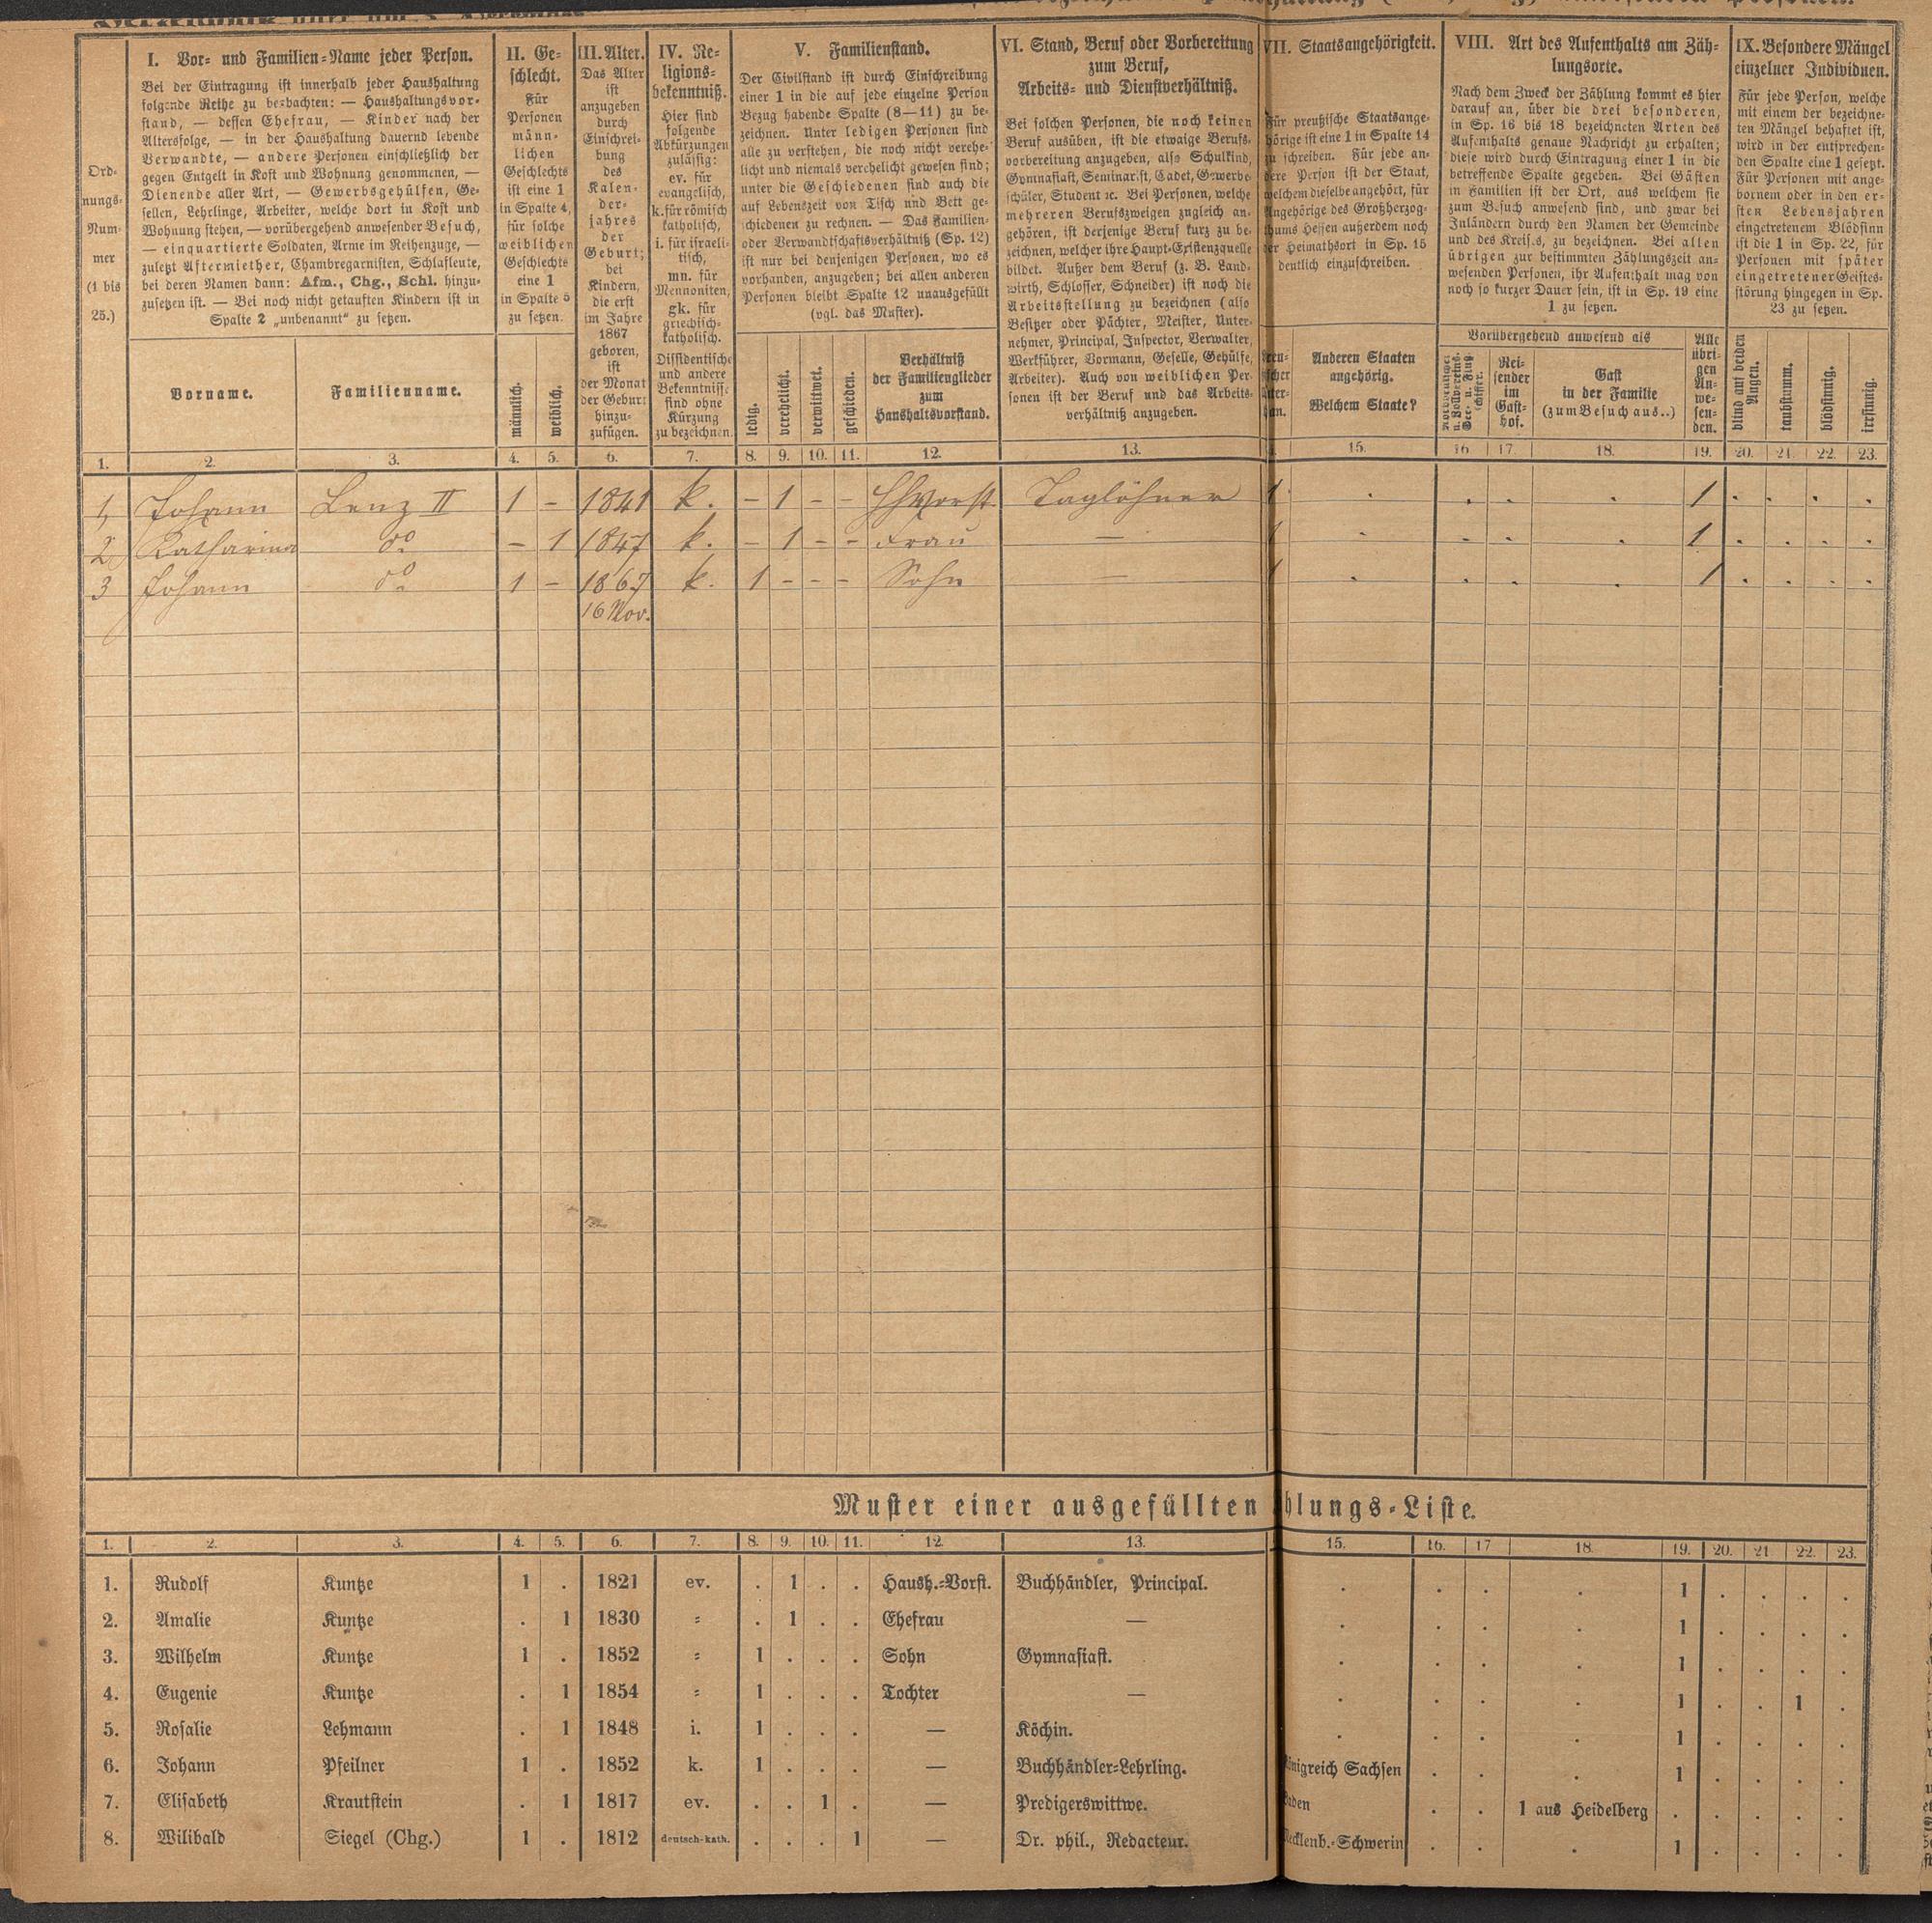 I. Vor- und Familien-Name jeder Person.
Bei der Eintragung ist innerhalb jeder Haushaltung
folgende Reihe zu beobachten: — Haushaltungsvor-
stand, — dessen Ehefrau, — Kinder nach der
Altersfolge, — in der Haushaltung dauernd lebende
Verwandte, — andere Personen einschließlich der
gegen Entgelt in Kost und Wohnung genommenen, —
Dienende aller Art, — Gewerbsgehülfen, Ge-
sellen, Lehrlinge, Arbeiter, welche dort in Kost und
Wohnung stehen, — vorübergehend anwesender Besuch,
— einquartierte Soldaten, Arme im Reihenzuge, —
zuletzt Aftermiether, Chambregarnisten, Schlafleute,
bei deren Namen dann: Afm., Chg., Schl. hinzu-
zusetzen ist. — Bei noch nicht getauften Kindern ist in
Spalte 2 „unbenannt“ zu setzen.
Ord-
nungs-
Num-
mer
(1 bis
25.)
Vorname.
Familienname.
II. Ge-
schlecht.
Für
Personen
männ-
lichen
Geschlechts
ist eine 1
in Spalte 4,
für solche
weiblichen
Geschlechts
eine 1
in Spalte 5
zu setzen.
männlich.
weiblich.
III. Alter.
Das Alter
ist
anzugeben
durch
Einschrei-
bung
des
Kalen-
der-
jahres
der
Geburt;
bei
Kindern,
die erst
im Jahre
1867
geboren,
ist
der Monat
der Geburt
hinzu-
zufügen.
IV. Re-
ligions-
bekenntniß.
Hier sind
folgende
Abkürzungen
zulässig:
ev. für
evangelisch,
k. für römisch
katholisch,
i. für israeli-
tisch,
mn. für
Mennoniten,
gk. für
griechisch-
katholisch.
Dissidentische
und andere
Bekenntnisse
sind ohne
Kürzung
zu bezeichnen.
V. Familienstand.
Der Civilstand ist durch Einschreibung
einer 1 in die auf jede einzelne Person
Bezug habende Spalte (8—11) zu be-
zeichnen. Unter ledigen Personen sind
alle zu verstehen, die noch nicht verehe-
licht und niemals verehelicht gewesen sind;
unter die Geschiedenen sind auch die
auf Lebenszeit von Tisch und Bett ge-
schiedenen zu rechnen. — Das Familien-
oder Verwandtschaftsverhältniß (Sp. 12)
ist nur bei denjenigen Personen, wo es
vorhanden, anzugeben; bei allen anderen
Personen bleibt Spalte 12 unausgefüllt
(vgl. das Muster).
ledig.
verehelicht.
verwittwet.
geschieden.
Verhältniß
der Familienglieder
zum
Haushaltsvorstand.
VI. Stand, Beruf oder Vorbereitung
zum Beruf,
Arbeits- und Dienstverhältniß.
Bei solchen Personen, die noch keinen
Beruf ausüben, ist die etwaige Berufs-
vorbereitung anzugeben, also Schulkind,
Gymnasiast, Seminarist, Cadet, Gewerbe-
schüler, Student ꝛc. Bei Personen, welche
mehreren Berufszweigen zugleich an-
gehören, ist derjenige Beruf kurz zu be-
zeichnen, welcher ihre Haupt-Existenzquelle
bildet. Außer dem Beruf (z. B. Land-
wirth, Schlosser, Schneider) ist noch die
Arbeitsstellung zu bezeichnen (also
Besitzer oder Pächter, Meister, Unter-
nehmer, Principal, Inspector, Verwalter,
Werkführer, Vormann, Geselle, Gehülfe,
Arbeiter). Auch von weiblichen Per-
sonen ist der Beruf und das Arbeits-
verhältniß anzugeben.
VII. Staatsangehörigkeit.
Für preußische Staatsange-
hörige ist eine 1 in Spalte 14
zu schreiben. Für jede an-
dere Person ist der Staat,
welchem dieselbe angehört, für
Angehörige des Großherzog-
thums Hessen außerdem noch
der Heimathsort in Sp. 15
deutlich einzuschreiben.
Anderen Staaten
angehörig.
Welchem Staate?
VIII. Art des Aufenthalts am Zäh-
lungsorte.
Nach dem Zweck der Zählung kommt es hier
darauf an, über die drei besonderen,
in Sp. 16 bis 18 bezeichneten Arten des
Aufenthalts genaue Nachricht zu erhalten;
diese wird durch Eintragung einer 1 in die
betreffende Spalte gegeben. Bei Gästen
in Familien ist der Ort, aus welchem sie
zum Besuch anwesend sind, und zwar bei
Inländern durch den Namen der Gemeinde
und des Kreises, zu bezeichnen. Bei allen
übrigen zur bestimmten Zählungszeit an-
wesenden Personen, ihr Aufenthalt mag von
noch so kurzer Dauer sein, ist in Sp. 19 eine
1 zu setzen.
Vorübergehend anwesend als
Rei-
sender
im
Gast-
hof.
Gast
in der Familie
(zum Besuch aus..)
Alle
übri-
gen
An-
we-
sen-
den.
IX. Besondere Mängel
einzelner Individuen.
Für jede Person, welche
mit einem der bezeichne-
ten Mängel behaftet ist,
wird in der entsprechen-
den Spalte eine 1 gesetzt.
Für Personen mit ange-
bornem oder in den er-
sten Lebensjahren
eingetretenem Blödsinn
ist die 1 in Sp. 22, für
Personen mit später
eingetretener Geistes-
störung hingegen in Sp.
23 zu setzen.
blind auf beiden
Augen.
taubstumm.
blödsinnig.
irrsinnig.
1. 2. 3. 4. 5. 6. 7. 8. 9. 10. 11. 12. 13. 15. 16 17. 18. 19. 20. 21 22. 23.
1 Johann Lenz II 1 – 1841 k. – 1 – – HHVorst. Taglöhner 1 . . . . 1 . . . .
2 Katharina do – 1 1847 k. – 1 – – Frau — 1 . . . . 1 . . . .
3 Johann do 1 – 1867 k. 1 – – – Sohn — 1 . . . . 1 . . . .
16 Nov.
Muster einer ausgefüllten hlungs-Liste.
1. 2. 3. 4. 5. 6. 7. 8. 9. 10. 11. 12. 13. 15. 16. 17 18. 19. 20. 21 22. 23.
1. Rudolf Kuntze 1 . 1821 ev. . 1 . . Haush.-Vorst. Buchhändler, Principal. . . . . 1 . . . .
2. Amalie Kuntze . 1 1830 = . 1 . . Ehefrau — . . . . 1 . . . .
3. Wilhelm Kuntze 1 . 1852 = 1 . . . Sohn Gymnasiast. . . . . 1 . . . .
4. Eugenie Kuntze . 1 1854 = 1 . . . Tochter — . . . . 1 . . 1 .
5. Rosalie Lehmann . 1 1848 i. 1 . . . — Köchin. . . . . 1 . . . .
6. Johann Pfeilner 1 . 1852 k. 1 . . . — Buchhändler-Lehrling. önigreich Sachsen . . . 1 . . . .
7. Elisabeth Krautstein . 1 1817 ev. . . 1 . — Predigerswittwe. aden . . 1 aus Heidelberg . . . . .
8. Wilibald Siegel (Chg.) 1 . 1812 deutsch-kath. . . . 1 — Dr. phil., Redacteur. ecklenb.-Schwerin . . . 1 . . . .